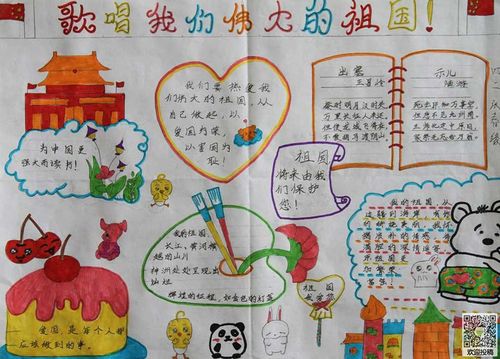 歌唱我们伟大的祖国!
为中国更
强大而读书!
我们要热爱我
们伟大的祖国,从
自己做起,以
爱国为荣,
以害国为
耻!
出塞
王昌龄
秦时明月汉时关
万里长征人未还
但使龙城飞将在
不教胡马度阴山
示儿
陆游
死去元知万事空
但悲不见九州同
王师北定中原日
家祭无忘告乃翁
祖国
将来由我
们保护
您!
我的祖国
长江,黄河横
越的山川
神州处处呈现出
灿烂
辉煌的征程,
祖国
我爱您
我的祖国,从
爱国是每个人都
应该做到的事。